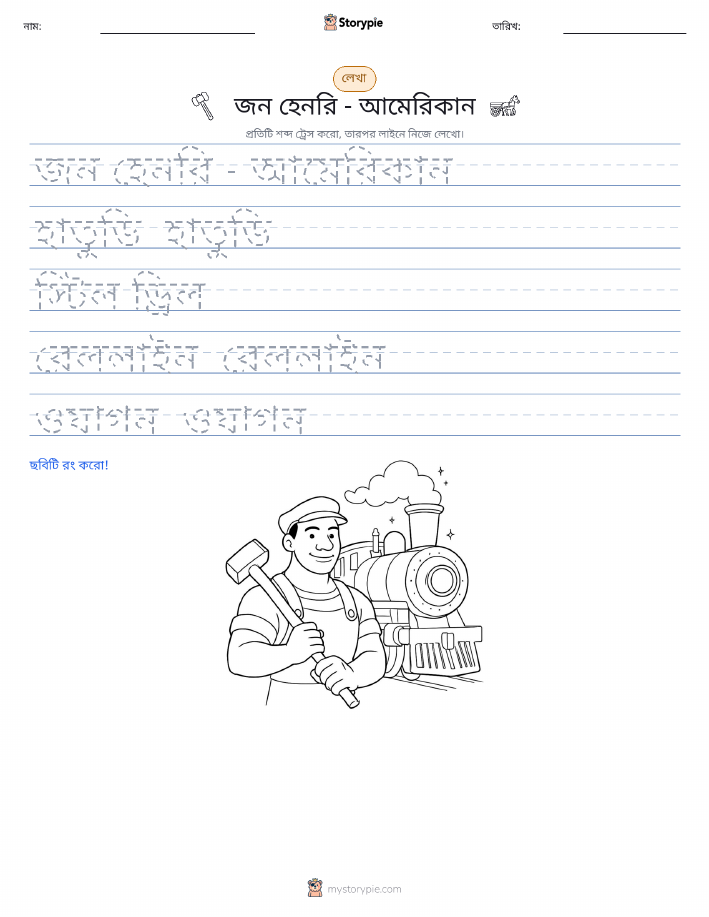 নাম:
Storypie
তারিখ:
লেখা
জন হেনরি - আমেরিকান
প্রতিটি শব্দ ট্রেস করো, তারপর লাইনে নিজে লেখো।
জন হেনরি - আমেরিকান
হাতুড়ি হাতুড়ি
স্টিল ড্রিল
রেললাইন রেললাইন
ওয়াগন ওয়াগন
ছবিটি রং করো!
mystorypie.com